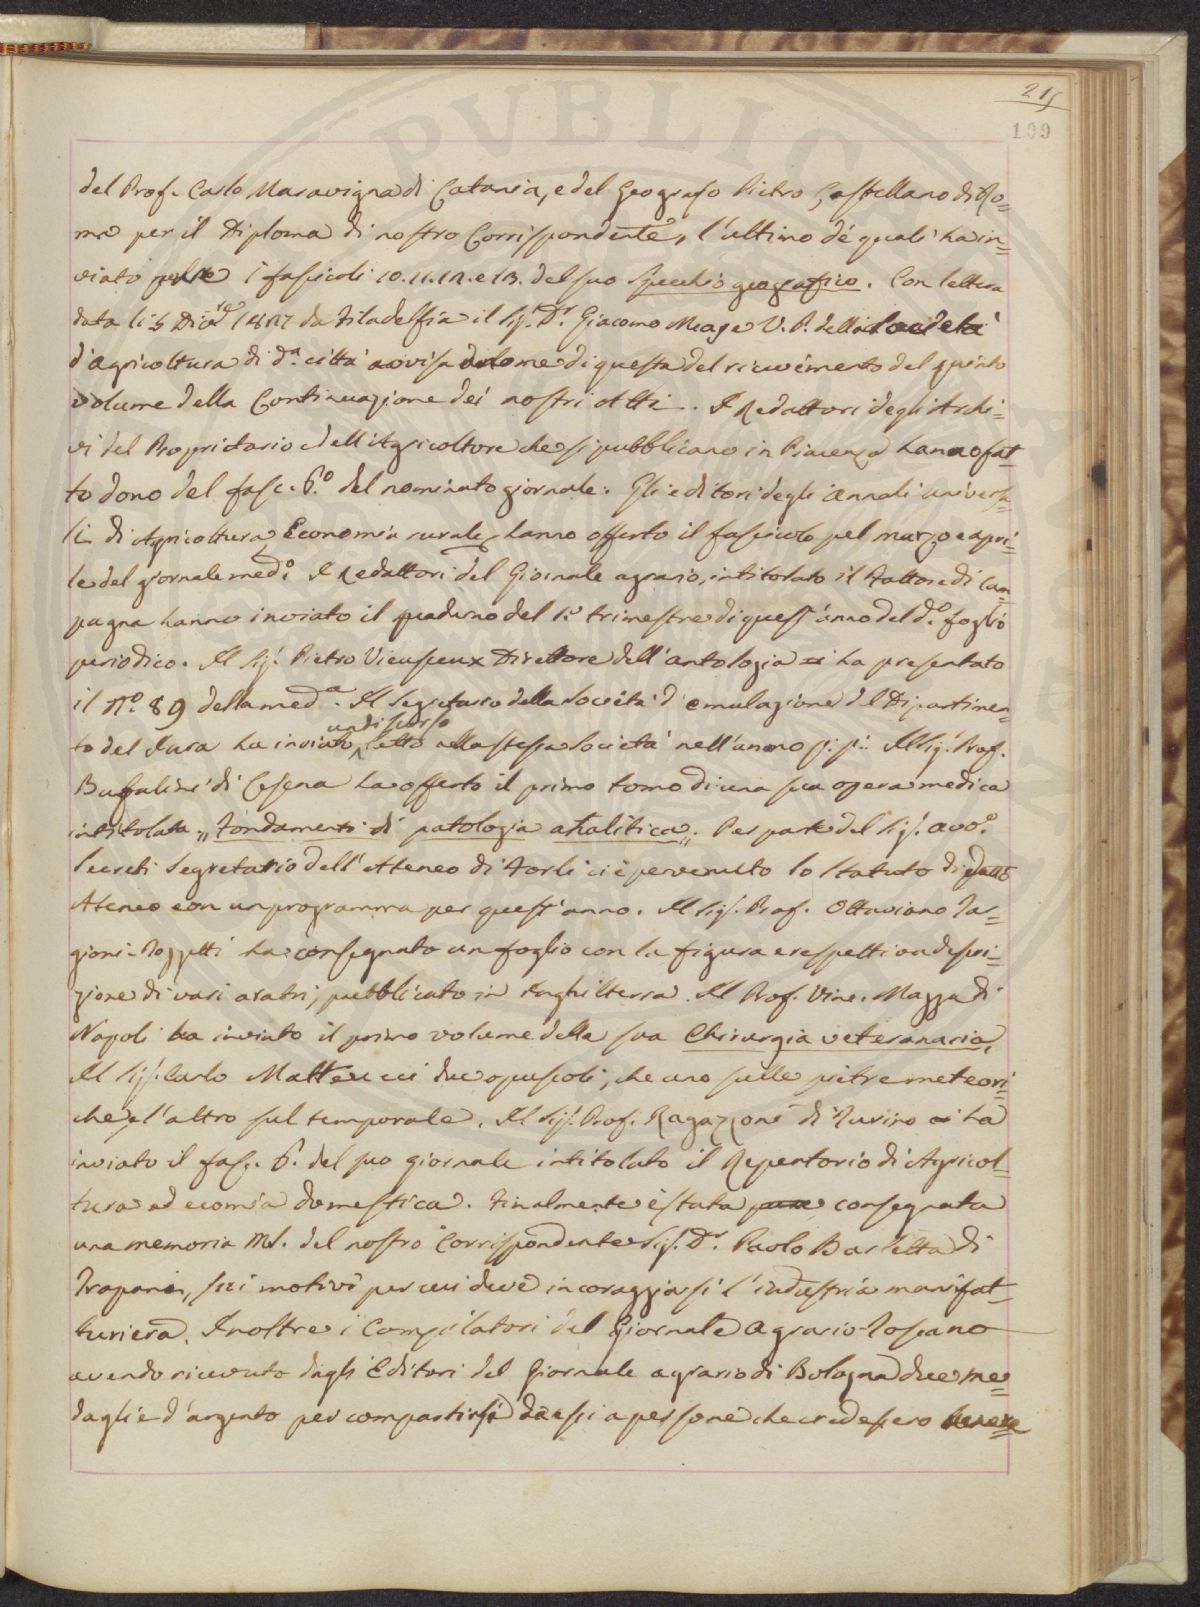 215
109
del Prof. Carlo Maravigna di Catania, e del Geografo Pietro Castellano di Ro=
ma per il Diploma di nostro Corrispondente, l'ultimo de' quali ha in=
viato i fascicoli 10. 11. 12. e 13. del suo Specchio geografico. Con lettera
data li 5 Dic.re 1827 da Filadelfia il Sig. D.r Giacomo Mease V. P. della Società
d'agricoltura di d.a città avvisa a nome di questa del ricevimento del quinto
volume della Continuazione dei nostri Atti. I Redattori degli Archi=
vi del Proprietario e dell'Agricoltore che si pubblicano in Piacenza hanno fat=
to dono del fasc. 6.o del nominato giornale. Gli editori degli annali universa=
li di Agricoltura, Economia rurale, hanno offerto il fascicolo pel marzo e apri=
le del giornale med.o I Redattori del Giornale agrario, intitolato il Fattore di Cam=
pagna hanno inviato il quaderno del 1.o trimestre di quest'anno del d.o foglio
periodico. Il Sig. Pietro Vieusseux Direttore dell'antologia ci ha presentato
il N.o 89 della med.a Il Segretario della Società d'emulazione del Dipartimen=
to del Jura ha inviato un discorso letto nella stessa Società nell'anno p. p. Il Sig. Prof.
Bufalini di Cesena ha offerto il primo tomo di una sua opera medica
intitolata „Fondamenti di patologia analitica„. Per parte del Sig. avv.o
Secreti Segretario dell'Ateneo di Forlì ci è pervenuto lo Statuto di detto
Ateneo con un programma per quest'anno. Il Sig. Prof. Ottaviano Tar=
gioni-Tozzetti ha consegnato un foglio con la figura e respettiva descri=
zione di vari aratri, pubblicato in Inghilterra. Il Prof. Vinc. Mazza di
Napoli ha inviato il primo volume della sua Chirurgia veteranaria,
Il Sig. Carlo Matteucci due opuscoli, che uno sulle pietre meteori=
che, e l'altro sul temporale. Il Sig. Prof. Ragazzoni di Turino ci ha
inviato il fasc. 6. del suo giornale intitolato il Repertorio di Agricol=
tura ed ecomia domestica. Finalmente è stata consegnata
una memoria MS. del nostro Corrispondente Sig. D.r Paolo Barletta di
Trapani, sui motivi per cui deve incoraggiarsi l'industria manifat=
turiera. Inoltre i Compilatori del Giornale Agrario-Toscano
avendo ricevuto dagli Editori del Giornale agrario di Bologna due me=
daglie d'argento per compartirsi da essi a persone che credessero